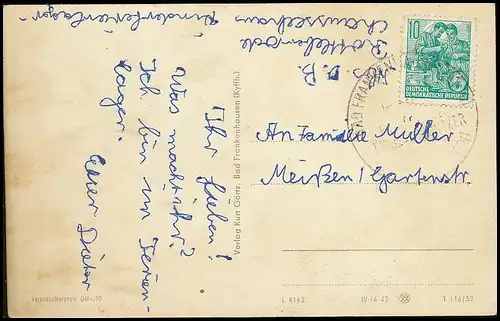 Ihr Lieben!
Was macht ihr?
Ich bin im Ferien-
lager.
Euer Dieter
Kinderferienlager
Chausseehaus
Rottleberode
An Familie Müller
Meißen / Gartenstr.
10
DEUTSCHE
DEMOKRATISCHE REPUBLIK
BAD FRANKEN
Verlag Kurt Görtz, Bad Frankenhausen (Kyffh.)
Verbraucherpreis DM -,20
L 4162
IV-14-45
T 116/59